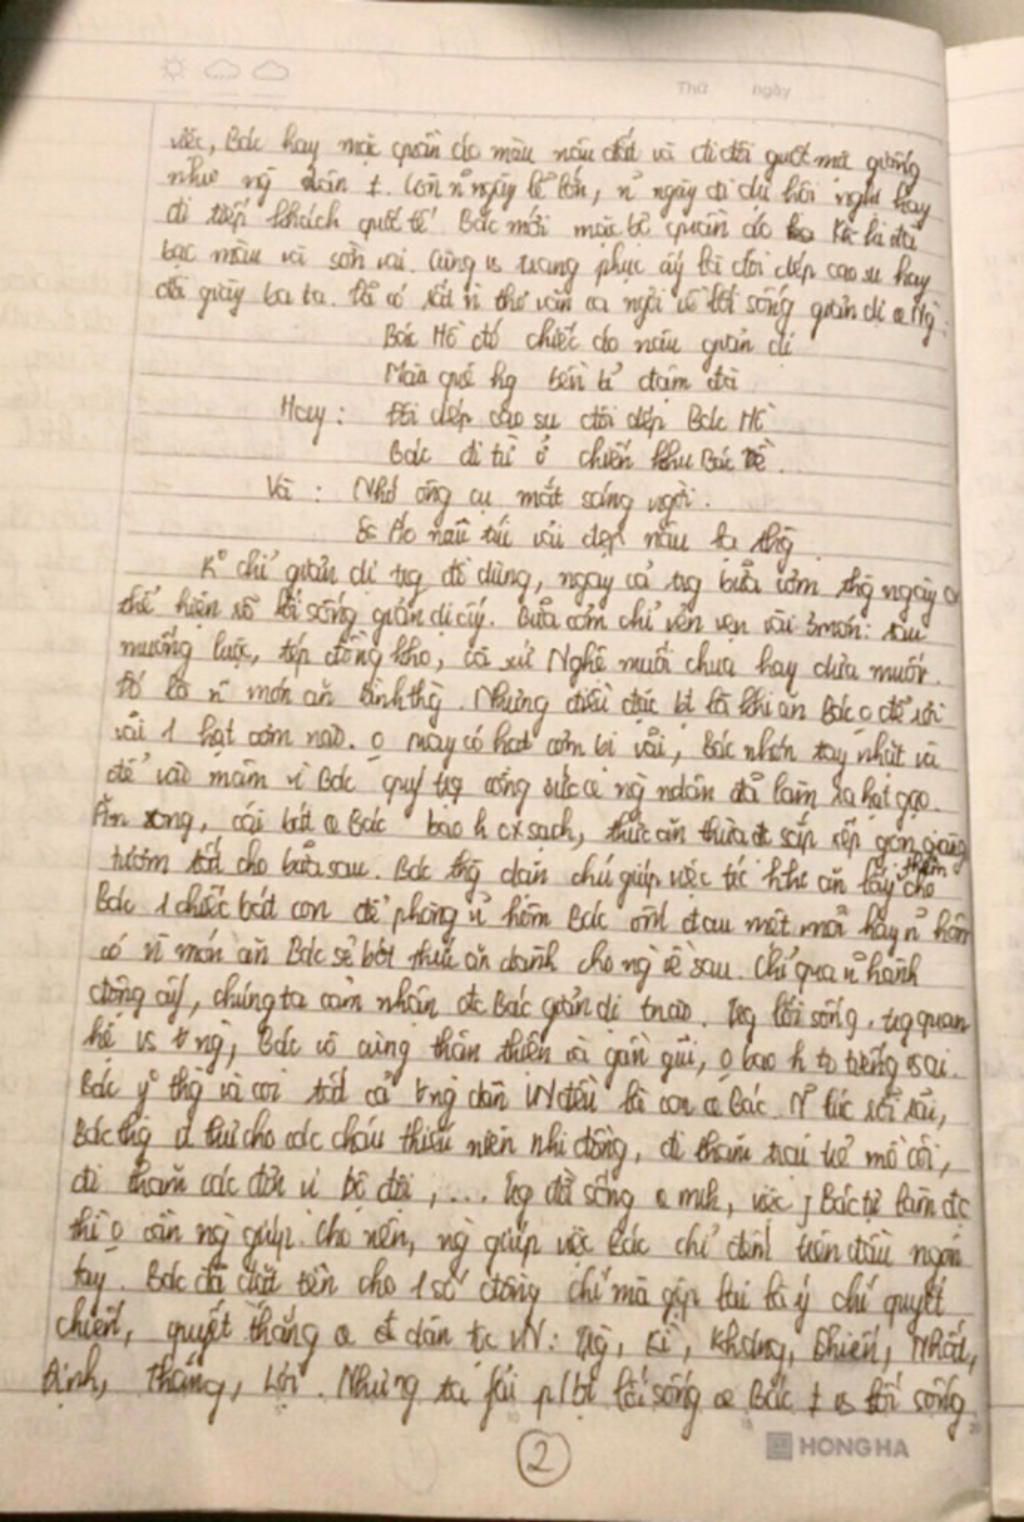 Thứ ngày
việc, Bác hay mặc quần áo màu nâu đất và đi đôi guốc mà giống
như ng . Còn n~ ngày lễ lớn, n~ ngày đi dự hội nghị hay
đi tiếp khách quốc tế Bác mới mặc bộ quần áo ka ki đã
bạc màu và sờn vai. Cùng vs trang phục ấy là đôi dép cao su hay
đôi giày ba ta. Đã có rất n` thơ văn ca ngợi về lối sống giản dị Ng :
Bác Hồ đó chiếc áo nâu giản dị
Màu quê hg bền bỉ đậm đà
Hay : Đôi dép cao su đôi dép Bác Hồ
Bác đi từ ở chiến khu Bác về.
Và : Nhớ ông cụ mắt sáng ngời.
Áo nâu túi vải đẹp nâu lạ thg
K chỉ giản dị trg đồ dùng, ngay cả trg bữa cơm thg ngày
thể hiện rõ lối sống giản dị ấy. Bữa cơm chỉ vẻn vẹn vài 3 món: rau
muống luộc, tép đồng kho, cà xứ Nghệ muối chua hay dưa muối.
Đó là n~ món ăn bình thg. Nhưng điều đặc bt là khi ăn Bác o để rơi
vãi 1 hạt cơm nào. o may có hạt cơm bị vãi, Bác nhón tay nhặt và
để vào mâm vì Bác quý trg công sức ng ndân đã làm ra hạt gạo.
Ăn xong, cái bát Bác bao h cx sạch, thức ăn thừa đc sắp xếp gọn gàng
tươm tất cho bữa sau. Bác thg dặn chú giúp việc trc khi ăn lấy thêm cho
Bác 1 chiếc bát con để phòng n~ hôm Bác ốm đau mệt mỏi hay n~ hôm
có n` món ăn Bác sẽ bớt thức ăn dành cho ng về sau. Chỉ qua n~ hành
động ấy, chúng ta cảm nhận đc Bác giản dị tnào. Trg lối sống, trg quan
hệ vs ng, Bác vô cùng thân thiện và gần gũi, o bao h to tiếng vs ai.
Bác y thg và coi tất cả ng dân VN đều là con Bác. N~ lúc rỗi rãi,
Bác thg thư cho các cháu thiếu niên nhi đồng, đi thăm trại trẻ mồ côi,
đi thăm các đơn vị bộ đội, ... Trg đời sống mìh, việc j Bác tự làm đc
thì o cần ng giúp. Cho nên, ng giúp việc Bác chỉ đếm trên đầu ngón
tay. Bác đã đặt tên cho 1 số đồng chí mà gộp lại là ý chí quyết
chiến, quyết thắng dân tộc VN: Trg, Kì, Kháng, Chiến, Nhất,
Định, Thắng, Lợi. Nhưng ta fải p/bt lối sống Bác vs lối sống
2
HONG HA